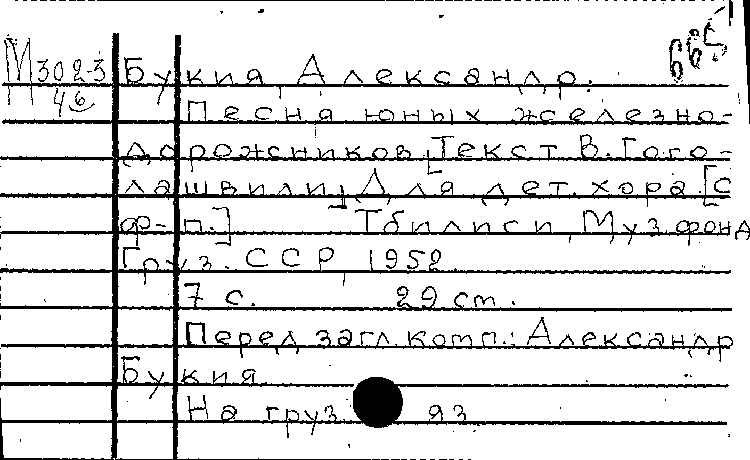 665
М 302-3 Букия, Александр.
46 Песня юных железно-
дорожников. [Текст В. Гого-
лашвили] Для дет. хора [с
ф-п.] Тбилиси, Музфонд
Груз. ССР, 1952.
7 с. 29 см.
Перед загл. комп.: Александр
Букия
На груз. яз.